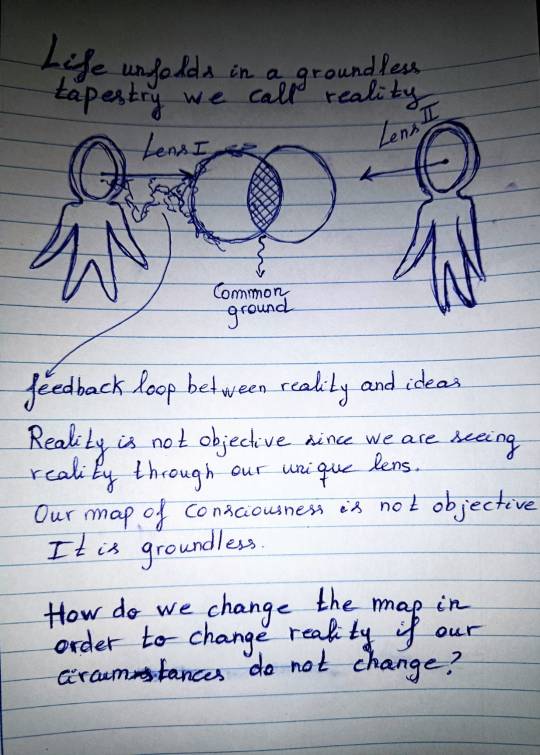 Life unfolds in a groundless
tapestry we call reality
Lens I
Lens II
Common
ground
feedback loop between reality and ideas
Reality is not objective since we are seeing
reality through our unique lens.
Our map of consciousness is not objective
It is groundless.
How do we change the map in
order to change reality if our
circumstances do not change?